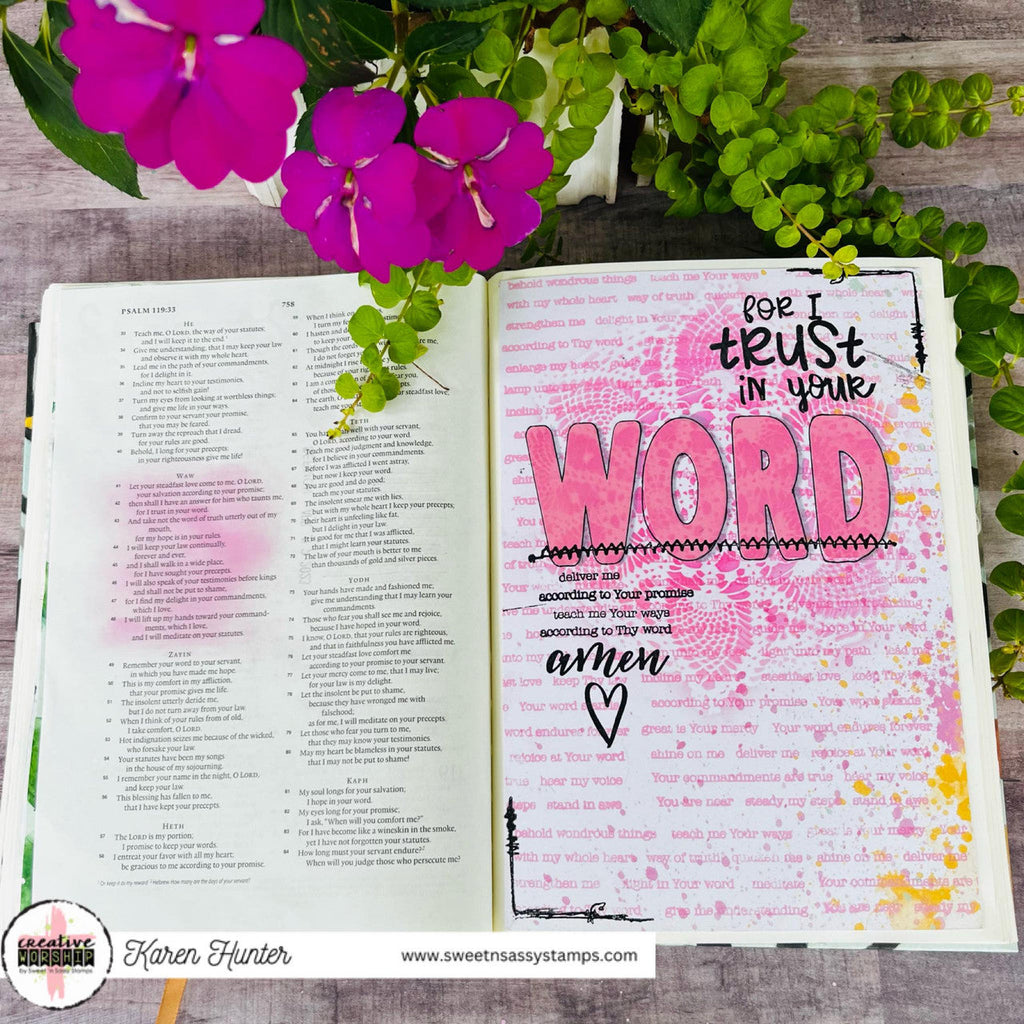 PSALM 119:33
758
HE
33 Teach me, O LORD, the way of your statutes;
and I will keep it to the end.¹
34 Give me understanding, that I may keep your law
and observe it with my whole heart.
35 Lead me in the path of your commandments,
for I delight in it.
36 Incline my heart to your testimonies,
and not to selfish gain!
37 Turn my eyes from looking at worthless things;
and give me life in your ways.
38 Confirm to your servant your promise,
that you may be feared.
39 Turn away the reproach that I dread,
for your rules are good.
40 Behold, I long for your precepts;
in your righteousness give me life!
WAW
41 Let your steadfast love come to me, O LORD,
your salvation according to your promise;
42 then shall I have an answer for him who taunts me,
for I trust in your word.
43 And take not the word of truth utterly out of my
mouth,
for my hope is in your rules.
44 I will keep your law continually,
forever and ever,
45 and I shall walk in a wide place,
for I have sought your precepts.
46 I will also speak of your testimonies before kings
and shall not be put to shame,
47 for I find my delight in your commandments,
which I love.
48 I will lift up my hands toward your command-
ments, which I love,
and I will meditate on your statutes.
ZAYIN
49 Remember your word to your servant,
in which you have made me hope.
50 This is my comfort in my affliction,
that your promise gives me life.
51 The insolent utterly deride me,
but I do not turn away from your law.
52 When I think of your rules from of old,
I take comfort, O LORD.
53 Hot indignation seizes me because of the wicked,
who forsake your law.
54 Your statutes have been my songs
in the house of my sojourning.
55 I remember your name in the night, O LORD,
and keep your law.
56 This blessing has fallen to me,
that I have kept your precepts.
HETH
57 The LORD is my portion;
I promise to keep your words.
58 I entreat your favor with all my heart;
be gracious to me according to your promise.
59 When I think on
I turn my fe
60 I hasten and d
to keep
61 Though the cords
I do not forget
62 At midnight I rise
because of your
63 I am a com
of those
64 The earth, O steadfast love;
teach me
TETH
65 You have well with your servant,
O LORD, according to your word.
66 Teach me good judgment and knowledge,
for I believe in your commandments.
67 Before I was afflicted I went astray,
but now I keep your word.
68 You are good and do good;
teach me your statutes.
69 The insolent smear me with lies,
but with my whole heart I keep your precepts;
70 their heart is unfeeling like fat,
but I delight in your law.
71 It is good for me that I was afflicted,
that I might learn your statutes.
72 The law of your mouth is better to me
than thousands of gold and silver pieces.
YODH
73 Your hands have made and fashioned me;
give me understanding that I may learn your
commandments.
74 Those who fear you shall see me and rejoice,
because I have hoped in your word.
75 I know, O LORD, that your rules are righteous,
and that in faithfulness you have afflicted me.
76 Let your steadfast love comfort me
according to your promise to your servant.
77 Let your mercy come to me, that I may live;
for your law is my delight.
78 Let the insolent be put to shame,
because they have wronged me with
falsehood;
as for me, I will meditate on your precepts.
79 Let those who fear you turn to me,
that they may know your testimonies.
80 May my heart be blameless in your statutes,
that I may not be put to shame!
KAPH
81 My soul longs for your salvation;
I hope in your word.
82 My eyes long for your promise;
I ask, "When will you comfort me?"
83 For I have become like a wineskin in the smoke,
yet I have not forgotten your statutes.
84 How long must your servant endure?²
When will you judge those who persecute me?
¹ Or keep it as my reward ² Hebrew How many are the days of your servant?
behold wondrous things teach me Your ways
with my whole heart way of truth quicken me with my whole heart
strengthen me delight in Your
according to Thy word
FOR I
TRUST
IN YOUR
WORD
deliver me
according to Your promise
teach me Your ways
according to Thy word
amen
according to Your promise Your word stands
word endures forever great is Your mercy Your word endures forever
rejoice at Your word shine on me deliver me rejoice at Your word
true hear my voice Your commandments are true hear my voice
steps stand in awe You are near steady my steps stand in awe
behold wondrous things teach me Your ways great is Your mercy Your
with my whole heart way of truth quicken me shine on me deliver me
strengthen me delight in Your word meditate Your commandments are
word give me understanding You are near steady my
creative
WORSHIP
by Sweet 'n Sassy Stamps
Karen Hunter
www.sweetnsassystamps.com